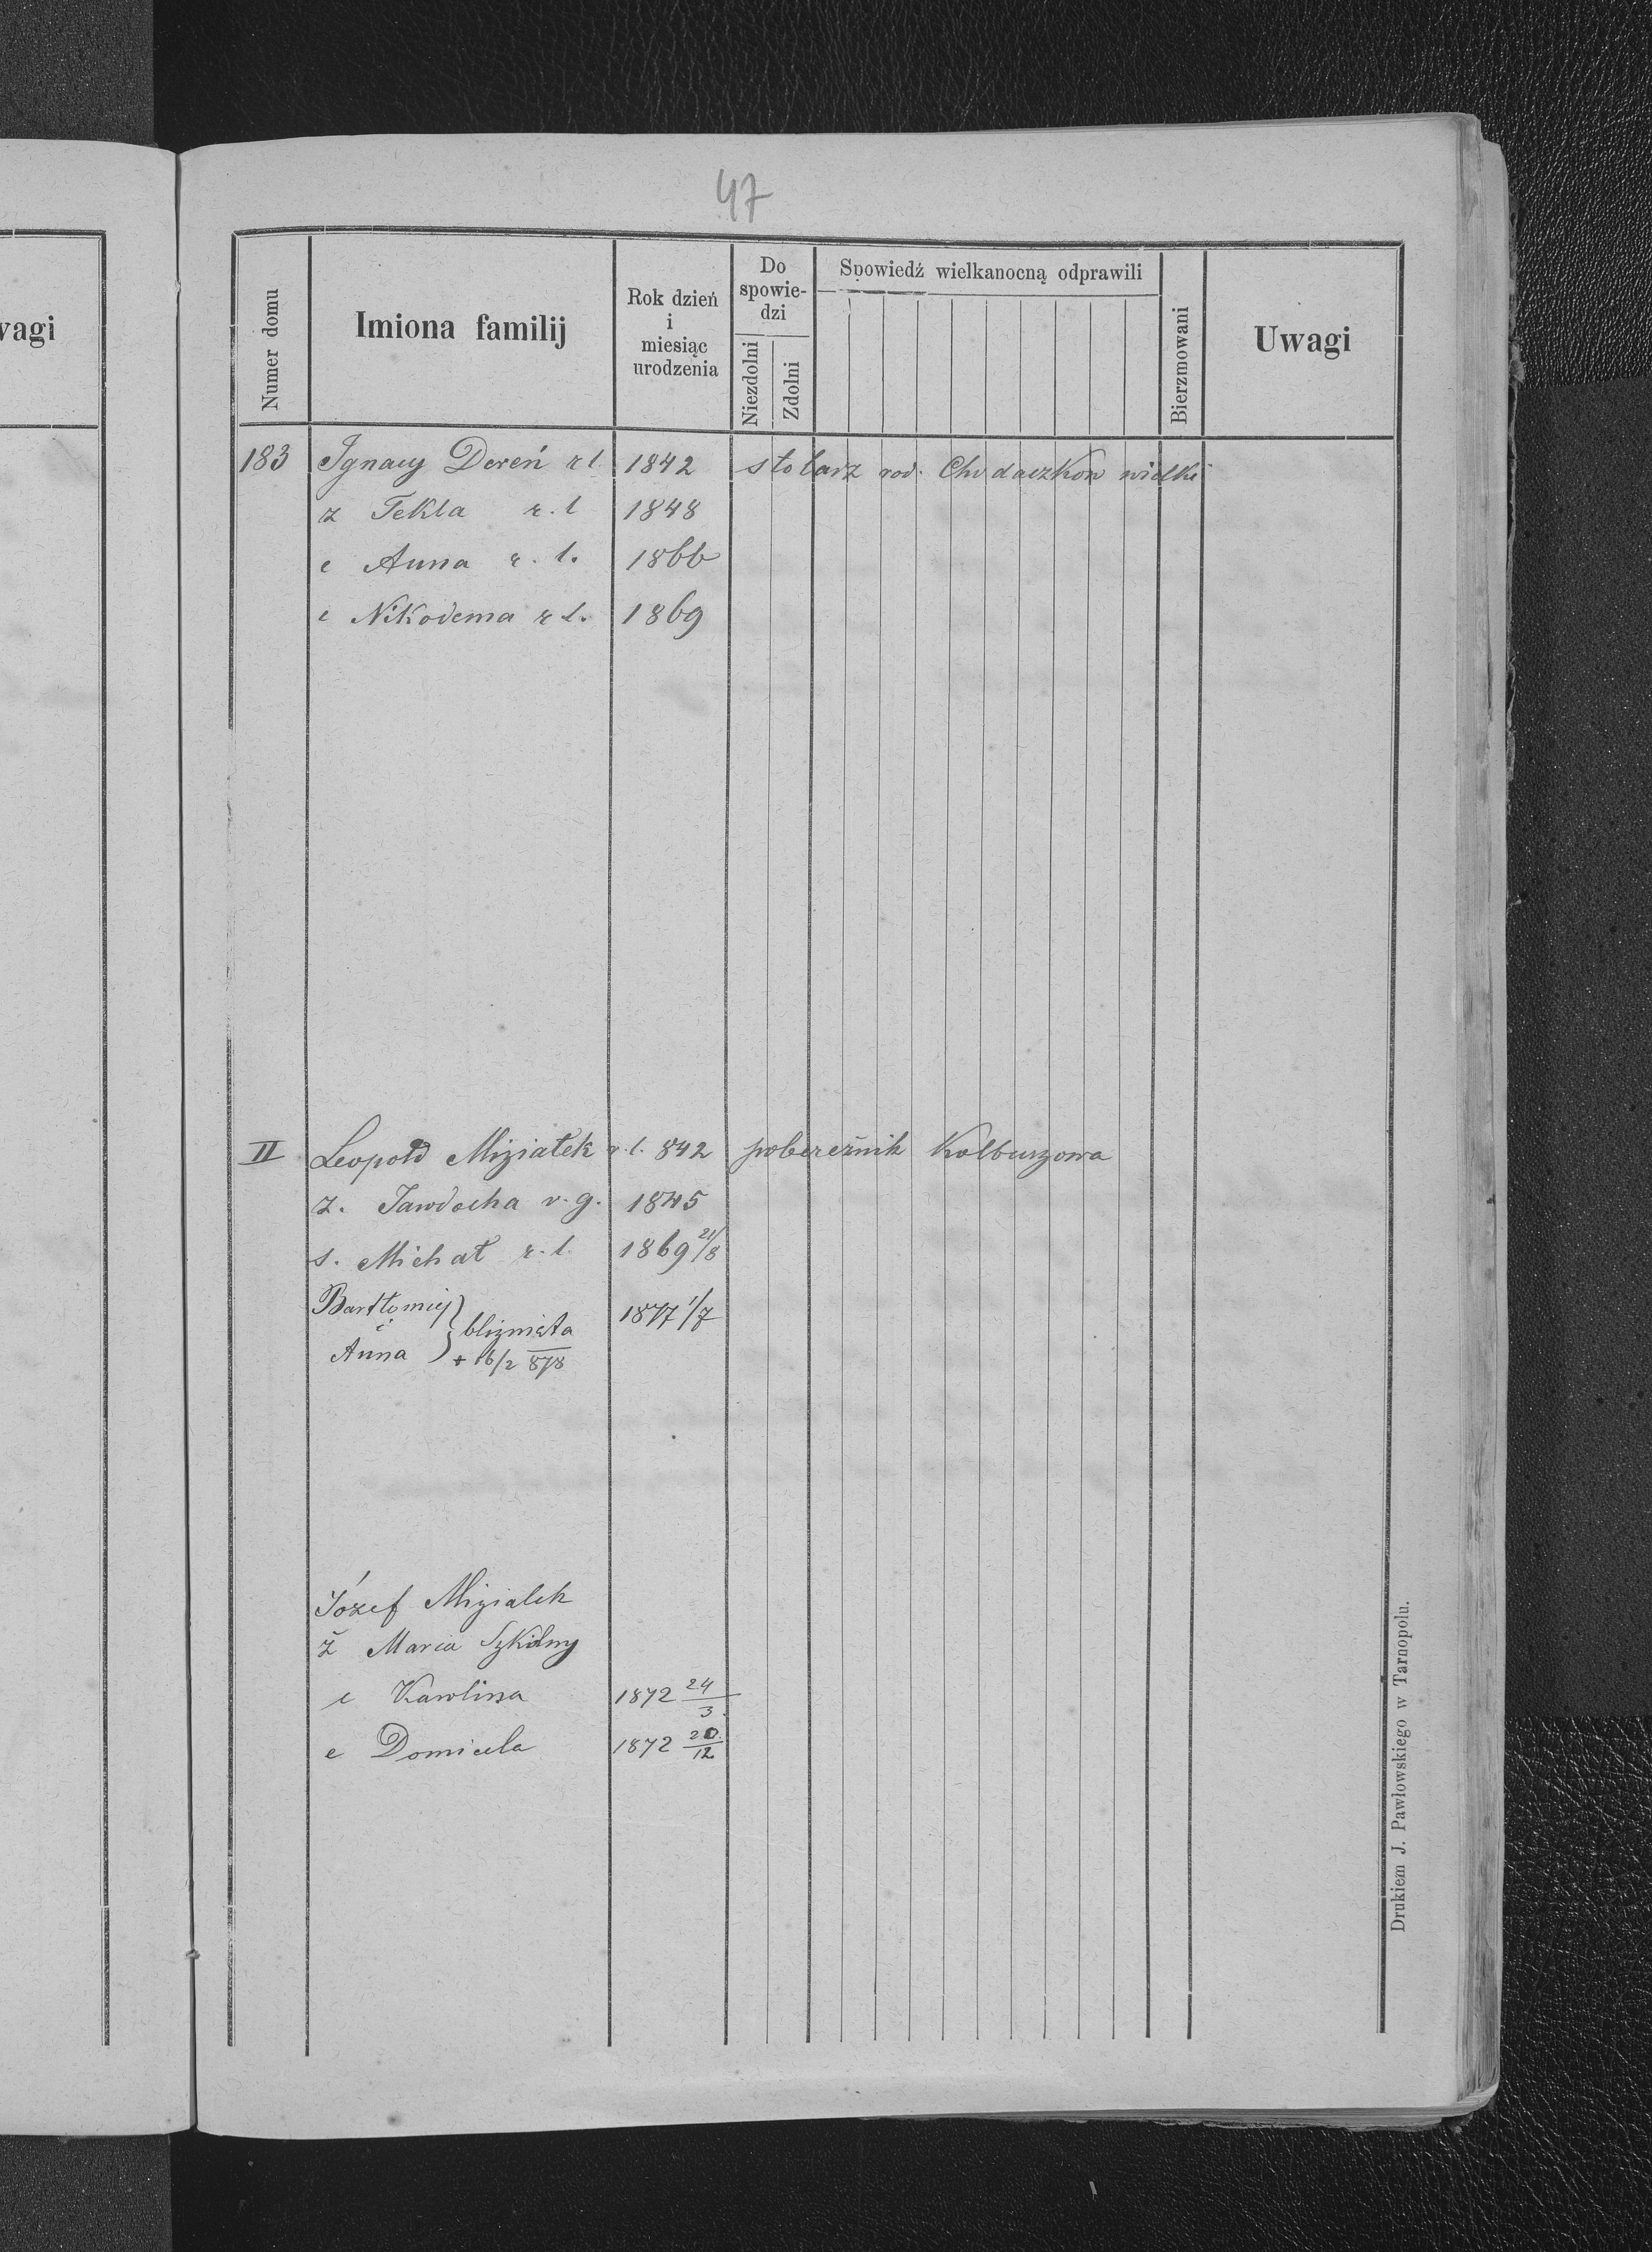 47
wagi
Numer domu
Imiona familij
Rok dzień
i
miesiąc
urodzenia
Do
spowie-
dzi
Niezdolni
Zdolni
Spowiedź wielkanocną odprawili
Bierzmowani
Uwagi
183 Ignacy Dereń r l 1842 stolarz rod. Chodaczkow wielki
z Tekla r. l 1848
c Anna r. l. 1866
c Nikodema r l. 1869
II Leopold Miziałek r. l. 842 pobereżnik Kolbuszowa
z. Jawdocha r. g. 1845
s. Michał r. l. 1869 21/8
Bartłomiej
i
Anna } bliznięta 1877 1/7
+ 16/2 878
Józef Mizialek
ż Maria Szkolny
c Karolina 1872 24/3
c Domicela 1872 20/12
Drukiem J. Pawłowskiego w Tarnopolu.